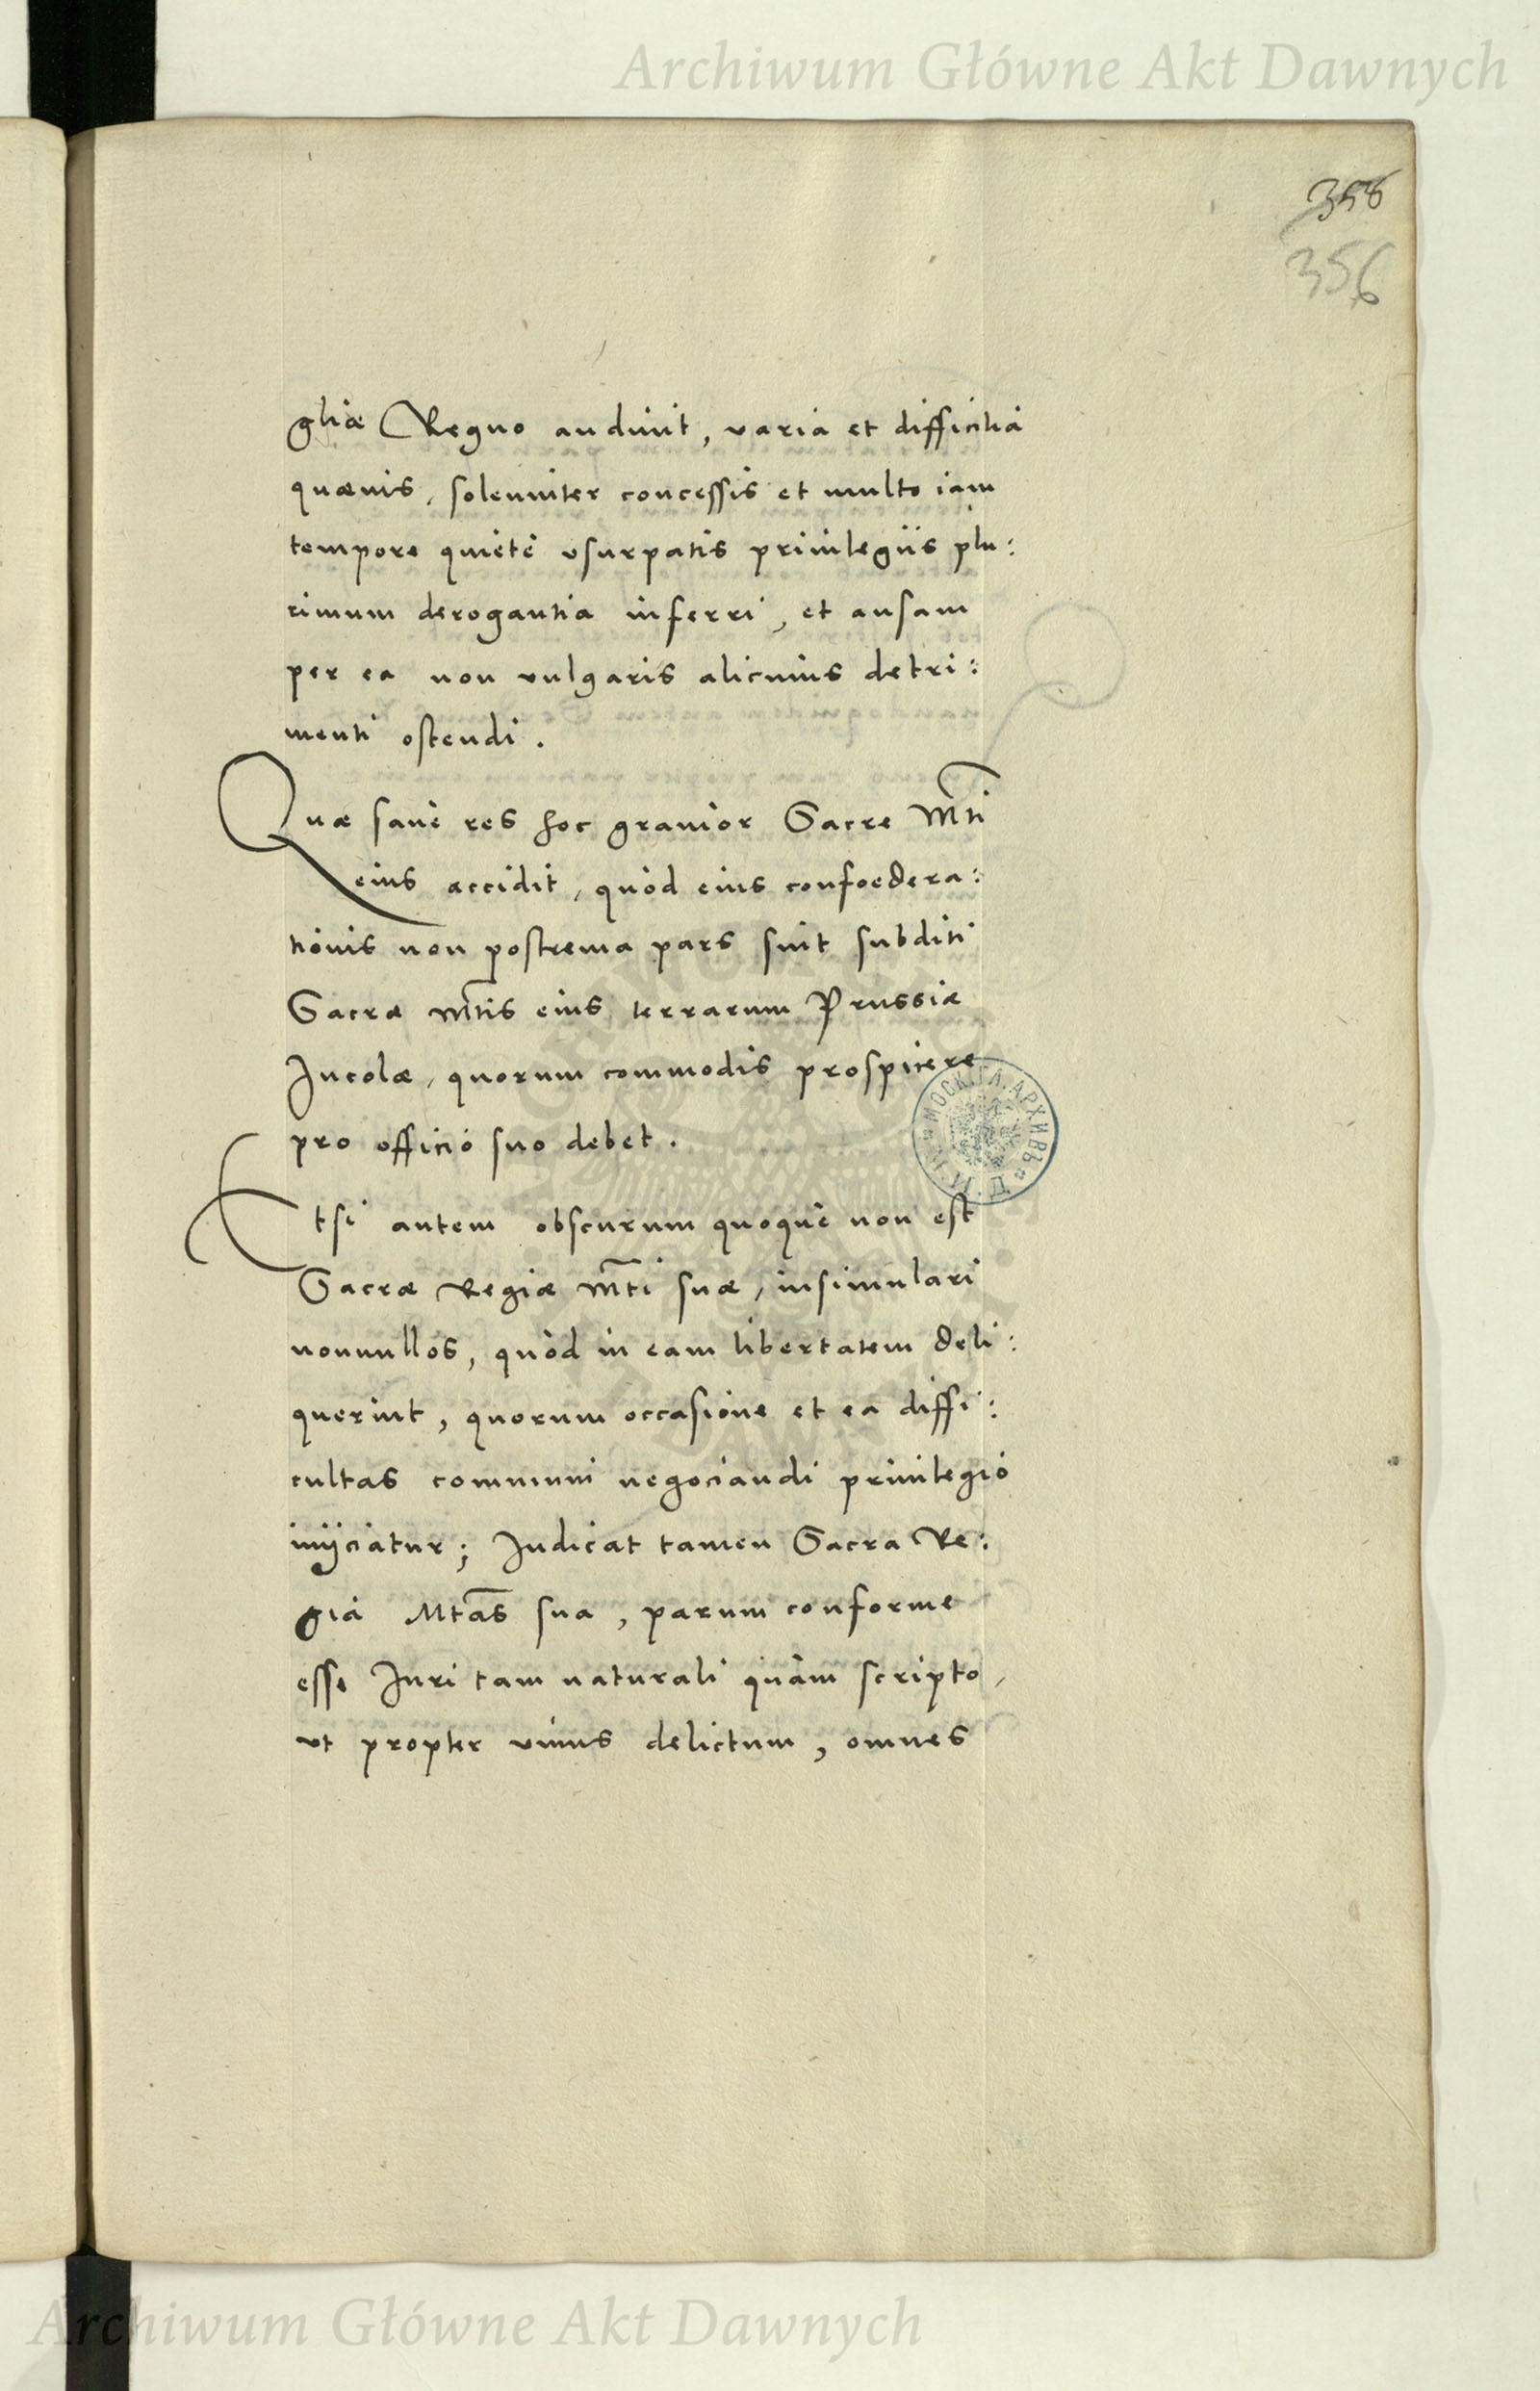 Archiwum Główne Akt Dawnych
358
356
gliæ Regno audiuit, varia et difficilia
quæuis, solenniter concessis et multo iam
tempore quietè vsurpatis priuilegijs plu:
rimum derogantia inferri, et ansam
per ea non vulgaris alicuius detri:
menti ostendi.
Quæ sanè res hoc grauior Sacræ Mti
eius accidit, quòd eius confoedera:
tionis non postrema pars sint subditi
Sacræ Mtis eius terrarum Prussiæ
Incolæ, quorum commodis prospicere
pro officio suo debet.
Etsi autem obscurum quoquè non est
Sacræ Regiæ Mti suæ, insimulari
nonnullos, quòd in eam libertatem deli:
querint, quorum occasione et ea diffi:
cultas communi negociandi priuilegio
inijciatur; Iudicat tamen Sacra Re:
gia Mtas sua, parum conforme
esse Iuri tam naturali quàm scripto,
vt propter vnius delictum, omnes
МОСК. ГЛ. АРХИВЪ М. И. Д.
Archiwum Główne Akt Dawnych